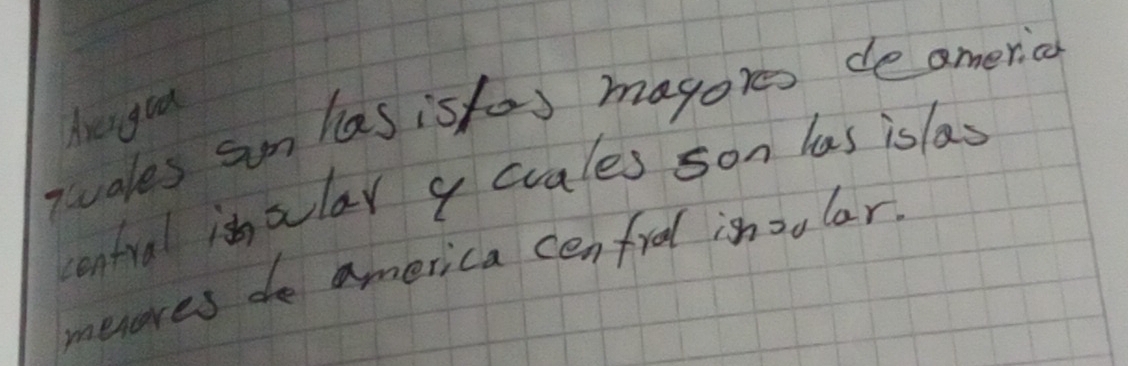 Averigua
cuales son las islas mayores de america
central insular y cuales son las islas
menores de america central insular.